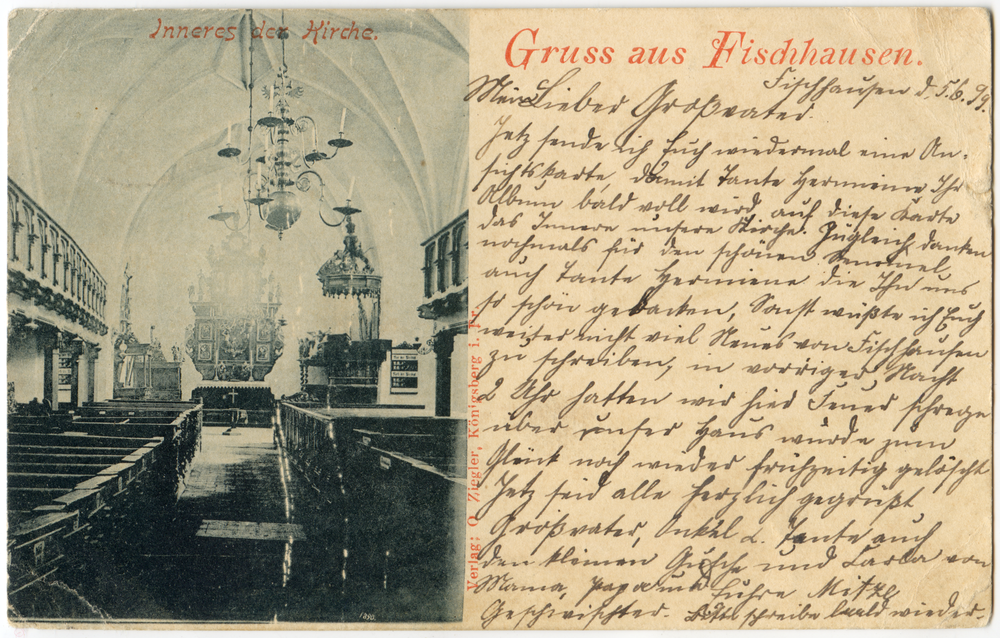 Inneres der Kirche.
Gruss aus Fischhausen.
Fischhausen d. 5.6.99.
Mein Lieber Großvater.
Jetz sende ich Euch wiedermal eine An-
sichtskarte, damit Tante Hermiene Ihr
Album bald voll wird, auf diese Karte
das Innere unsere Kirche. Zugleich danken
nochmals für den schönen
auch Tante Hermiene die Ihn uns
so schön gebacken, Sonst wüßte ich Euch
weiter nicht viel Neues von Fischhausen
zu schreiben, in vorriger Nacht
2 Uhr hatten wir hier Feuer schrege
über unser Haus wurde zum
Glück noch wieder frühzeitig gelöscht
Jetz seid alle herzlich gegrüßt
Großvater, Onkel u. Tante auch
den kleinen und von
Mama, Papa und Euhre
Geschwischter. schreibe baald wieder.
Verlag: O. Ziegler, Königsberg i. Pr.
1290.